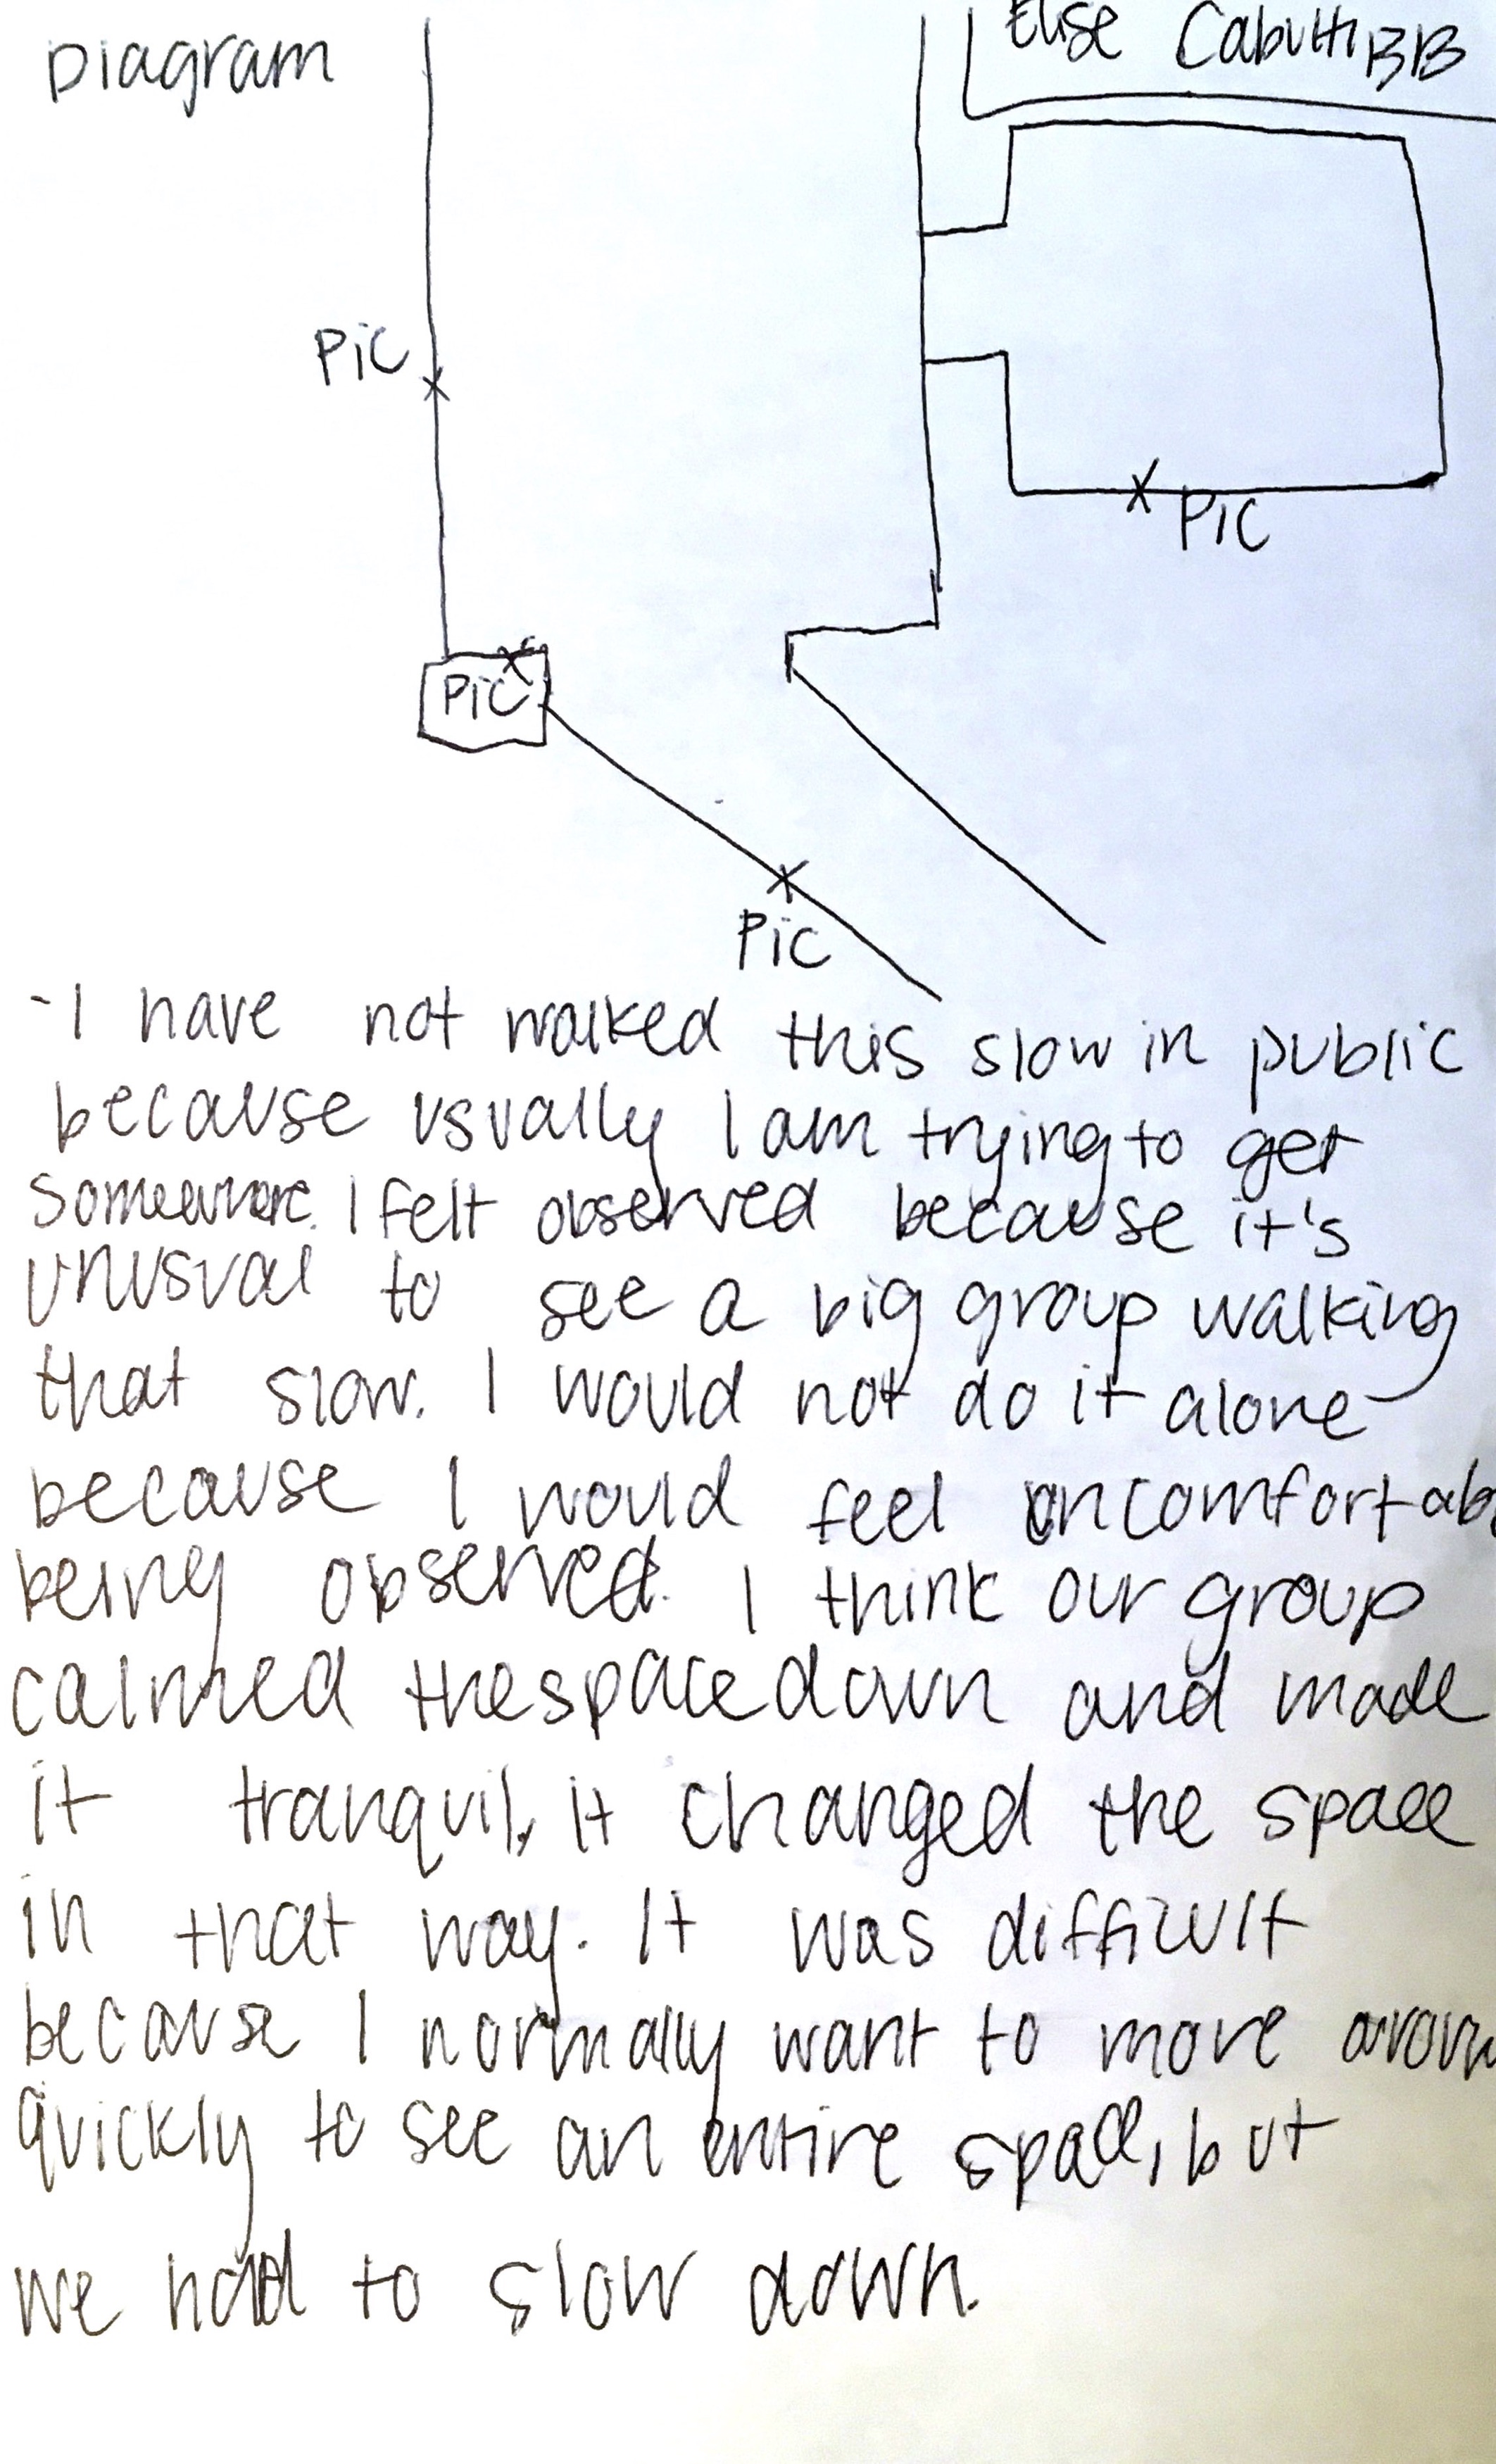 Diagram
Elise Cabutti BB
Pic
Pic
Pic
Pic
-I have not walked this slow in public
because usually I am trying to get
somewhere. I felt observed because it's
unusual to see a big group walking
that slow. I would not do it alone
because I would feel uncomfortab
being observed. I think our group
calmed the space down and made
it tranquil, it changed the space
in that way. It was difficult
because I normally want to move aroun
quickly to see an entire space, but
we had to slow down.